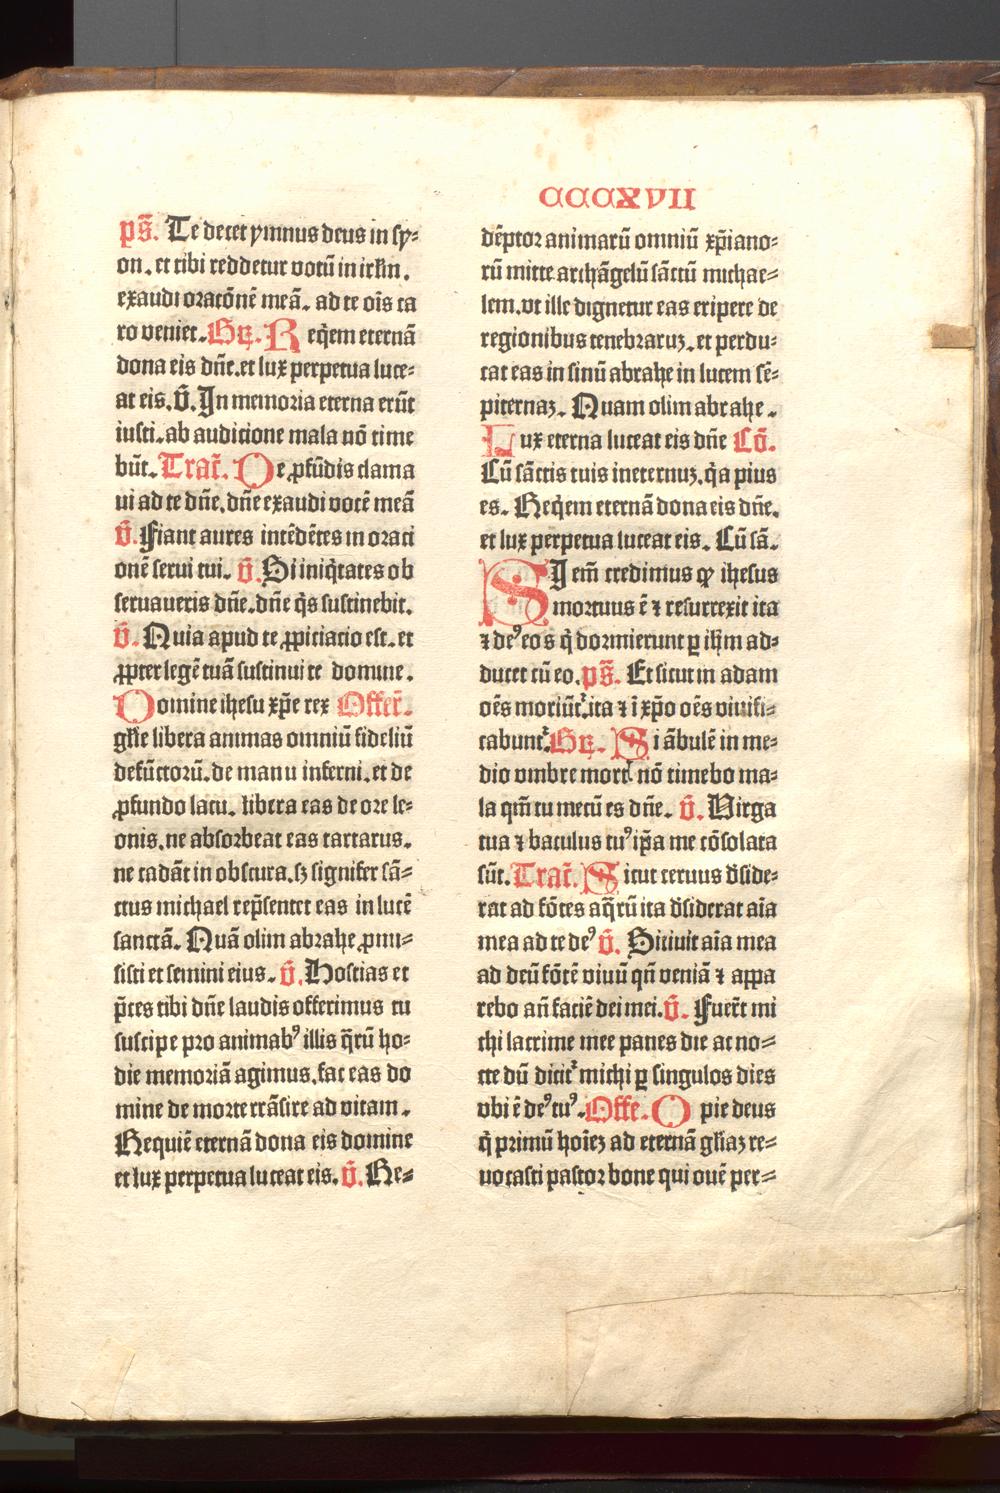 CCCXVII
ps̄. Te decet ymnus deus in sy⸗
on. et tibi reddetur votū in irlm̄.
exaudi oratōnē meā. ad te oīs ca
ro veniet. Gr̄. Reqͥem eternā
dona eis dn̄e. et lux perpetua luce⸗
at eis. v̄. In memoria eterna erūt
iusti. ab auditione mala nō time
būt. Tract̄. De ꝓfūdis clama
ui ad te dn̄e. dn̄e exaudi vocē meā
v̄. Fiant aures intēdētes in orati
onē serui tui. v̄. Si iniqͥtates ob
seruaueris dn̄e. dn̄e qͥs sustinebit.
v̄. Quia apud te ꝓpiciacio est. et
ꝓpter legē tuā sustinui te domine.
Domine ihesu xp̄e rex Offer̄.
glīe libera animas omniū fideliū
defūctorū. de manu inferni. et de
ꝓfundo lacu. libera eas de ore le⸗
onis. ne absorbeat eas tartarus.
ne cadāt in obscura. sꝫ signifer sā⸗
ctus michael rep̄sentet eas in lucē
sanctā. Quā olim abrahe ꝓmi⸗
sisti et semini eius. v̄. Hostias et
p̄ces tibi dn̄e laudis offerimus tu
suscipe pro animabꝰ illis q̄rū ho⸗
die memoriā agimus. fac eas do
mine de morte trāsire ad vitam.
Requiē eternā dona eis domine
et lux perpetua luceat eis. v̄. Re⸗
dēptor animarū omniū xp̄iano⸗
rū mitte archāgelū sāctū michae⸗
lem. vt ille dignetur eas eripere de
regionibus tenebraruꝫ. et perdu⸗
cat eas in sinū abrahe in lucem sē⸗
piternaꝫ. Quam olim abrahe.
Lux eterna luceat eis dn̄e Cō.
Cū sāctis tuis in eternuꝫ. qͥa pius
es. Reqͥem eternā dona eis dn̄e.
et lux perpetua luceat eis. Cū sā.
SI em̄ credimus ꝙ ihesus
mortuus ē ⁊ resurrexit ita
⁊ deꝰ eos qͥ dormierunt ꝑ ihm̄ ad⸗
ducet cū eo. ps̄. Et sicut in adam
oēs moriūt᷑. ita ⁊ ī xp̄o oēs viuifi⸗
cabunt᷑. Gr̄. Si ābulē in me⸗
dio vmbre mortꝭ nō timebo ma⸗
la qm̄ tu mecū es dn̄e. v̄. Virga
tua ⁊ baculus tuꝰ ip̄a me cōsolata
sūt. Tract̄. Sicut ceruus d̄side⸗
rat ad fōtes aq̄rū ita d̄siderat aīa
mea ad te deꝰ v̄. Sitiuit aīa mea
ad deū fōtē viuū qn̄ veniā ⁊ appa
rebo an̄ faciē dei mei. v̄. Fuer̄t mi
chi lacrime mee panes die ac no⸗
cte dū dicit᷑ michi ꝑ singulos dies
vbi ē deꝰ tuꝰ. Offe. O pie deus
qͥ primū hoīeꝫ ad eternā glīaꝫ re⸗
uocasti pastor bone qui ouē per⸗